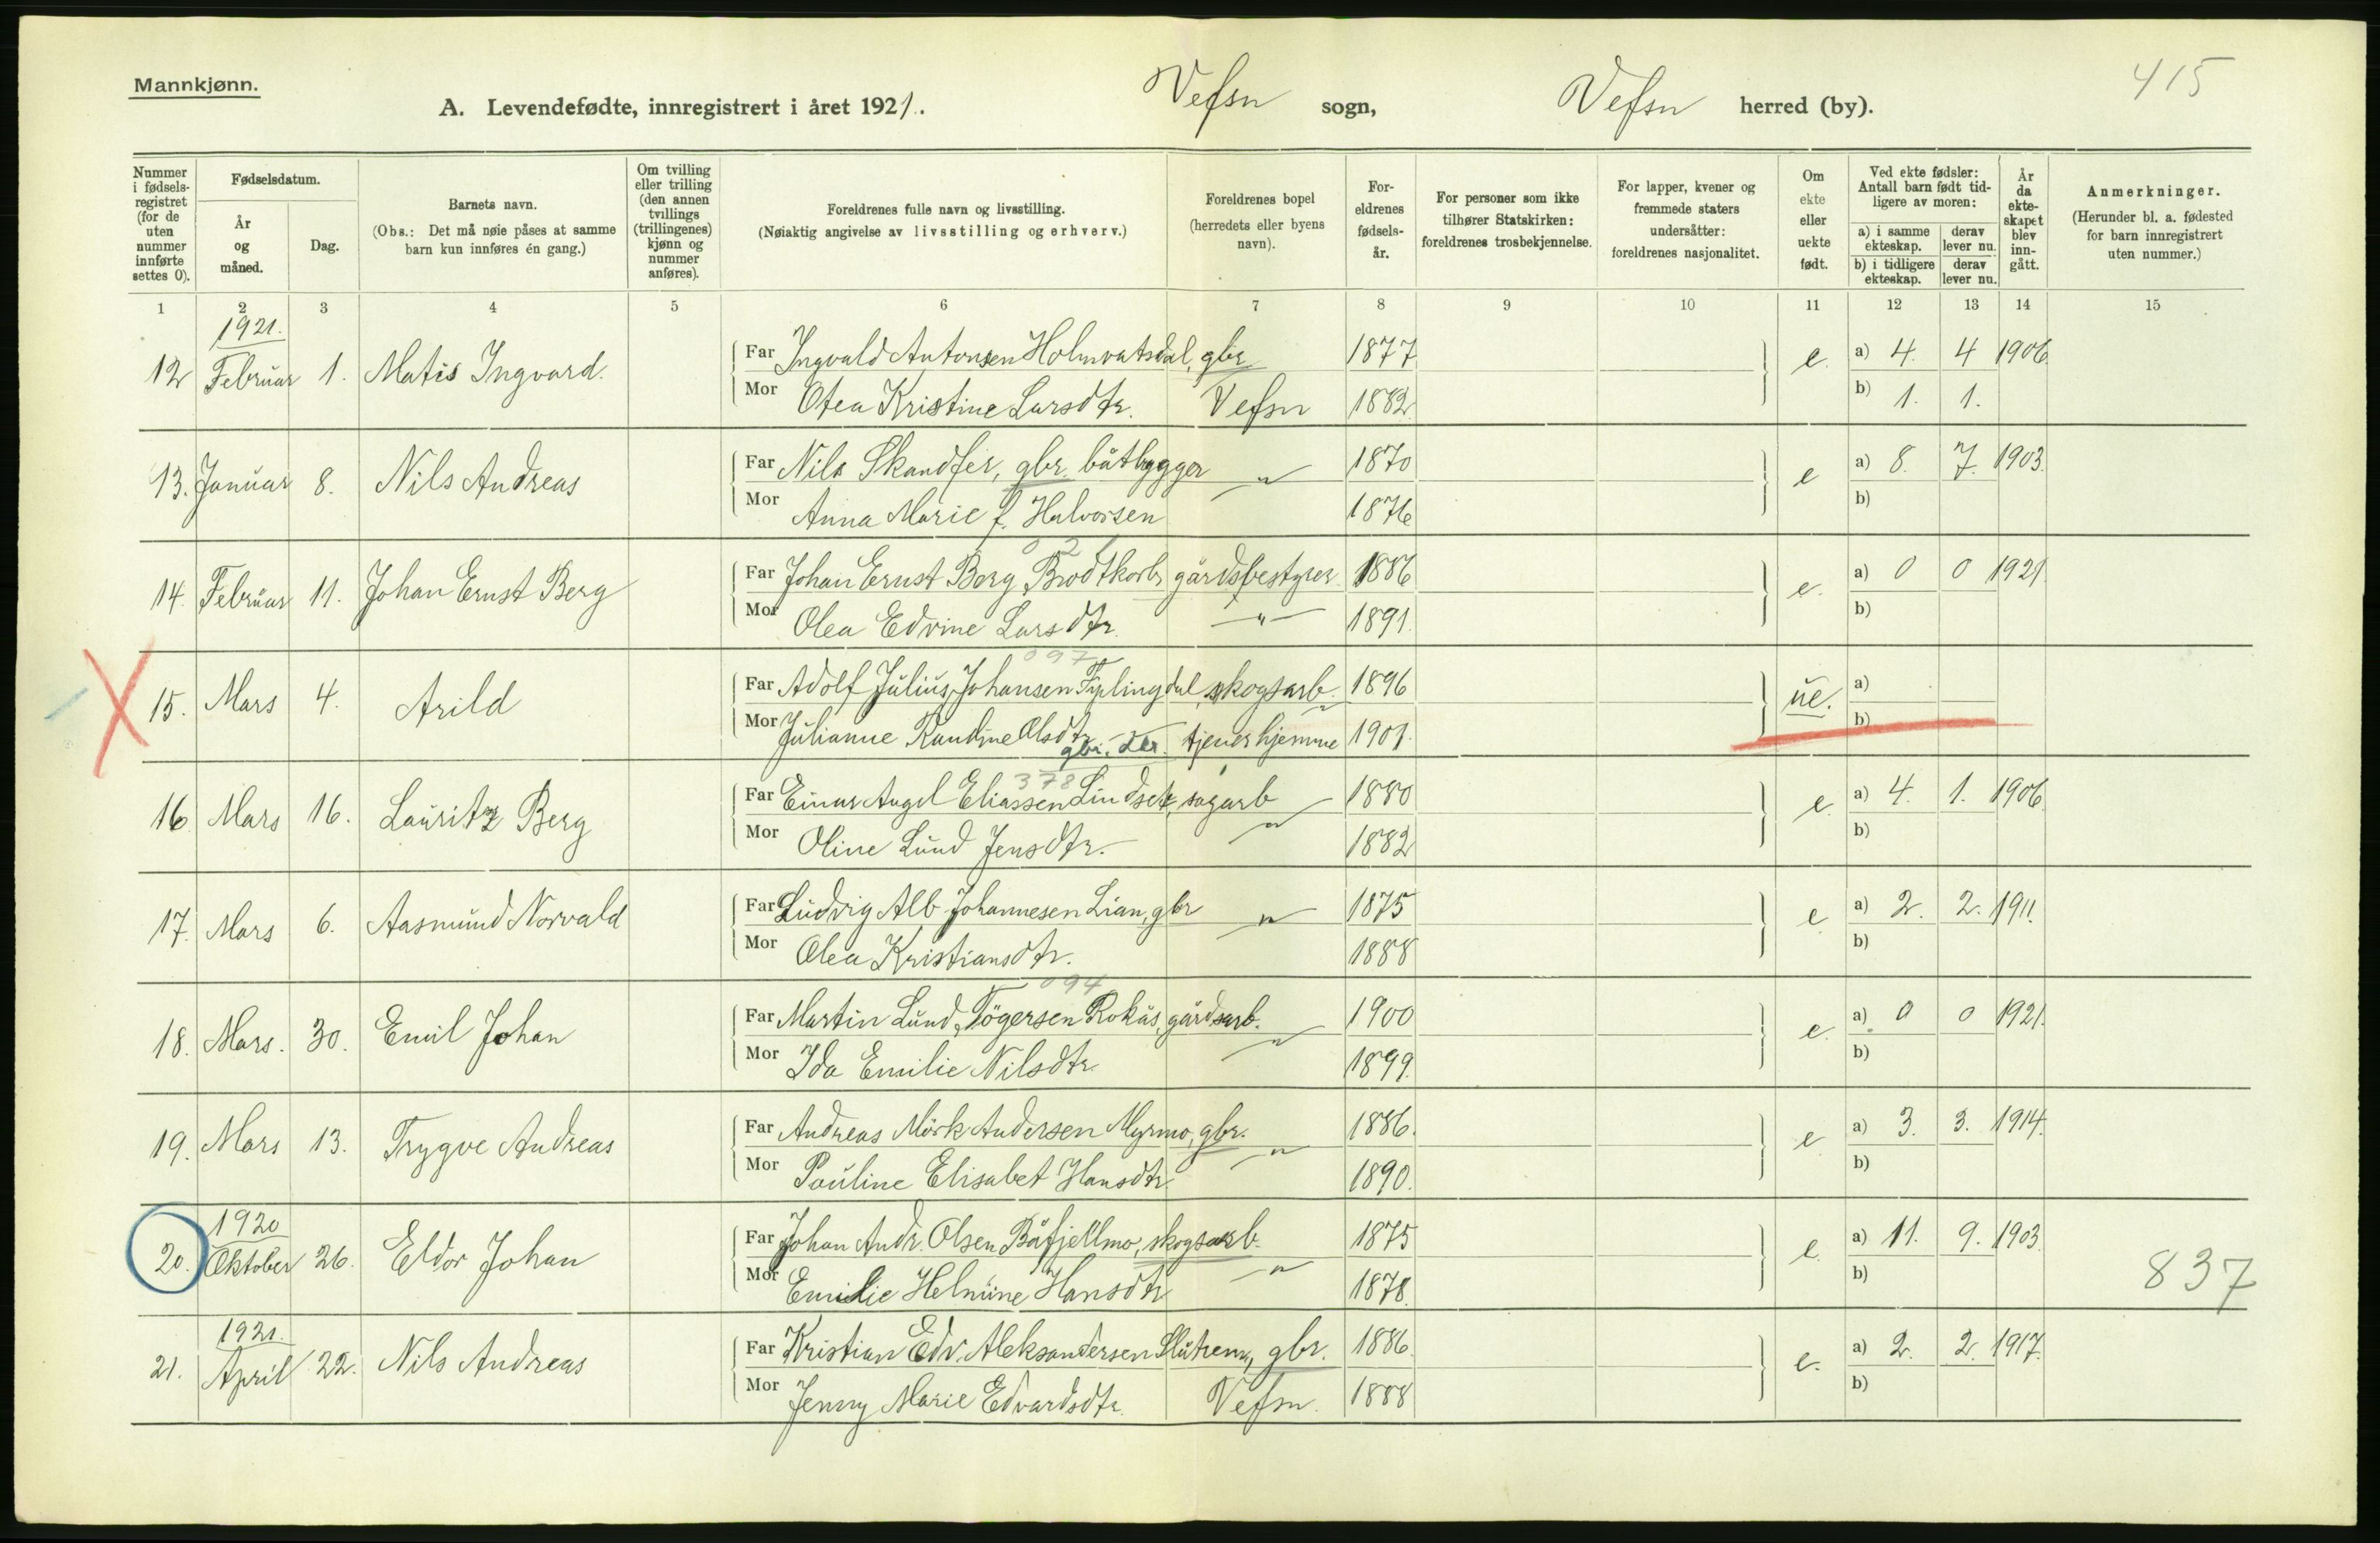 Mannkjønn.
415
A. Levendefødte, innregistrert i året 1921. Vefsn sogn, Vefsn herred (by).
Nummer i fødsels-registret (for de uten nummer innførte settes 0).
Fødselsdatum.
År og måned.
Dag.
Barnets navn.
(Obs.: Det må nøie påses at samme barn kun innføres én gang.)
Om tvilling eller trilling (den annen tvillings (trillingenes) kjønn og nummer anføres).
Foreldrenes fulle navn og livsstilling.
(Nøiaktig angivelse av livsstilling og erhverv.)
Foreldrenes bopel (herredets eller byens navn).
For-eldrenes fødsels-år.
For personer som ikke tilhører Statskirken: foreldrenes trosbekjennelse.
For lapper, kvener og fremmede staters undersåtter: foreldrenes nasjonalitet.
Om ekte eller uekte født.
Ved ekte fødsler: Antall barn født tid-ligere av moren:
a) i samme ekteskap. derav lever nu.
b) i tidligere ekteskap. derav lever nu.
År da ekte-skapet blev inn-gått.
Anmerkninger.
(Herunder bl. a. fødested for barn innregistrert uten nummer.)
1 2 3 4 5 6 7 8 9 10 11 12 13 14 15
1921.
12 Februar 1. Matis Ingvard. Far Ingvald Antonsen Holmvatsdal, gbr 1877 e. a) 4. 4 1906.
Mor Otea Kristine Larsdtr. Vefsn 1882 b) 1. 1.
13. Januar 8. Nils Andreas Far Nils Skandfer, gbr. båtbygger " 1870 e a) 8. 7. 1903.
Mor Anna Marie f. Halvorsen 1876 b)
02
14. Februar 11. Johan Ernst Berg Far Johan Ernst Berg Brodtkorb, gårdsbestyrer 1886 e. a) 0 0 1921
Mor Olea Edvine Larsdtr. " 1891. b)
097
15. Mars 4. Arild Far Adolf Julius Johansen Fiplingdal, skogsarb. 1896 ue. a)
Mor Julianne Randine Olsdtr. tjener hjemme 1901. b)
gbr. dtr.
378
16 Mars 16. Lauritz Berg Far Einar Angel Eliassen Lindset, sagarb 1880 e. a) 4. 1. 1906.
Mor Oline Lund Jensdtr. " 1882 b)
17. Mars 6. Aasmund Norvald Far Ludvig Alb. Johannesen Lian, gbr " 1875 e a) 2. 2. 1911.
Mor Olea Kristiansdtr. 1888 b)
094
18. Mars. 30. Emil Johan Far Martin Lund Tögersen Rokås, gårdsarb. 1900 e. a) 0 0 1921.
Mor Ida Emilie Nilsdtr. " 1899. b)
19. Mars 13. Trygve Andreas Far Andreas Mörk Andersen Myrmo, gbr. 1886. e a) 3. 3. 1914.
Mor Pauline Elisabet Hansdtr. " 1890. b)
1920
20. Oktober 26. Eldor Johan Far Johan Andr. Olsen Båfjellmo, skogsarb. 1875 e. a) 11. 9. 1903.
Mor Emilie Helmine Hansdtr " 1878. b) 837
1921.
21. April 22. Nils Andreas Far Kristian Edv. Aleksandersen gbr. 1886. e. a) 2. 2. 1917.
Mor Jenny Marie Edvardsdtr. Vefsn. 1888 b)